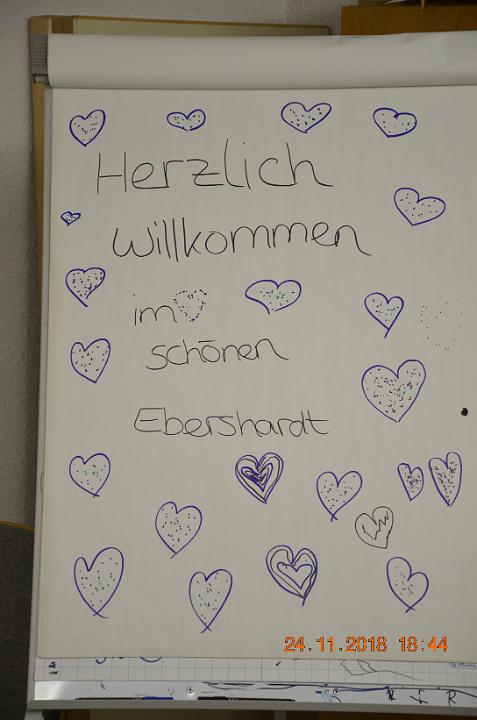 Herzlich
Willkommen
im
schönen
Ebershardt
24.11.2018 18:44